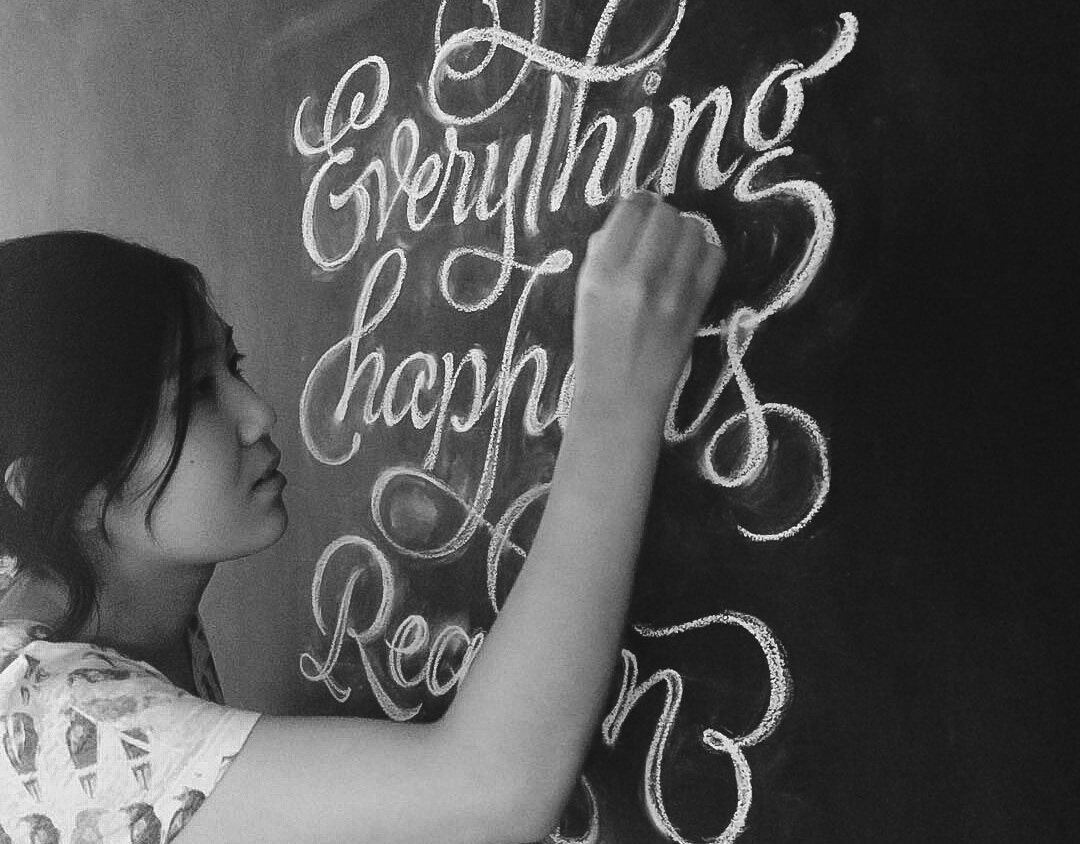 Everything
happens
Reason